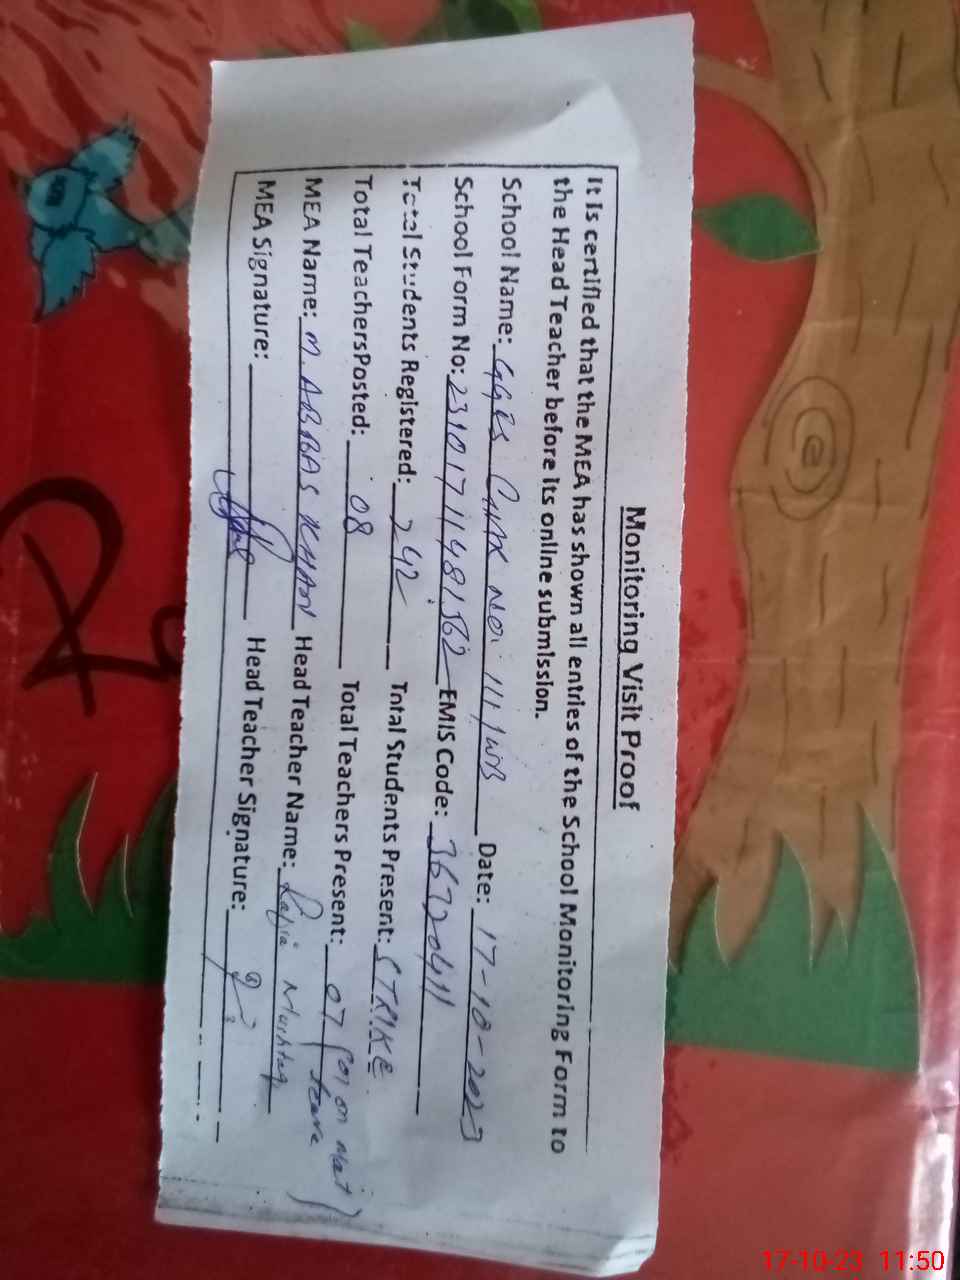 Monitoring Visit Proof
It is certified that the MEA has shown all entries of the School Monitoring Form to
the Head Teacher before its online submission.
School Name: GGES Chak No. 111/WB Date: 17-10-2023
School Form No: 23101711481362 EMIS Code: 36720411
Total Students Registered: 242 Total Students Present: STRIKE
Total Teachers Posted: 08 Total Teachers Present: 07 (01 on Mat leave)
MEA Name: M. ABBAS KHAN Head Teacher Name: Mushtaq
MEA Signature: Head Teacher Signature:
17-10-23 11:50